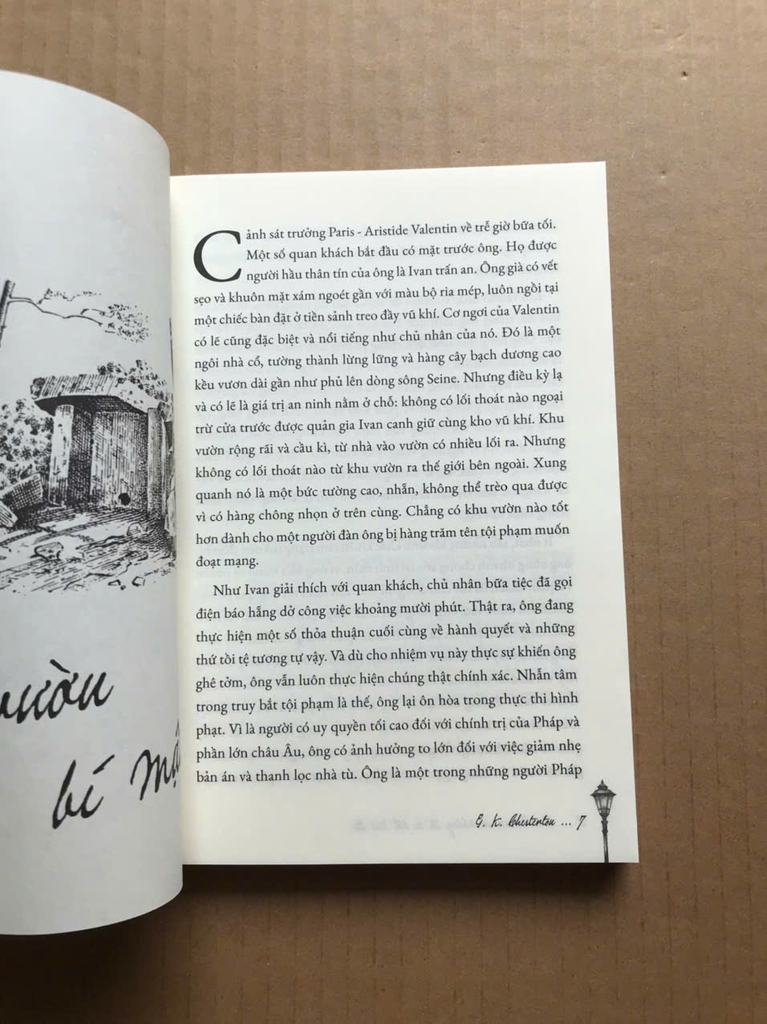 vườn
bí mậ
Cảnh sát trưởng Paris - Aristide Valentin về trễ giờ bữa tối.
Một số quan khách bắt đầu có mặt trước ông. Họ được
người hầu thân tín của ông là Ivan trấn an. Ông già có vết
sẹo và khuôn mặt xám ngoét gần với màu bộ ria mép, luôn ngồi tại
một chiếc bàn đặt ở tiền sảnh treo đầy vũ khí. Cơ ngơi của Valentin
có lẽ cũng đặc biệt và nổi tiếng như chủ nhân của nó. Đó là một
ngôi nhà cổ, tường thành lừng lững và hàng cây bạch dương cao
kều vươn dài gần như phủ lên dòng sông Seine. Nhưng điều kỳ lạ
và có lẽ là giá trị an ninh nằm ở chỗ: không có lối thoát nào ngoại
trừ cửa trước được quản gia Ivan canh giữ cùng kho vũ khí. Khu
vườn rộng rãi và cầu kì, từ nhà vào vườn có nhiều lối ra. Nhưng
không có lối thoát nào từ khu vườn ra thế giới bên ngoài. Xung
quanh nó là một bức tường cao, nhẵn, không thể trèo qua được
vì có hàng chông nhọn ở trên cùng. Chẳng có khu vườn nào tốt
hơn dành cho một người đàn ông bị hàng trăm tên tội phạm muốn
đoạt mạng.
Như Ivan giải thích với quan khách, chủ nhân bữa tiệc đã gọi
điện báo hẵng dở công việc khoảng mười phút. Thật ra, ông đang
thực hiện một số thỏa thuận cuối cùng về hành quyết và những
thứ tồi tệ tương tự vậy. Và dù cho nhiệm vụ này thực sự khiến ông
ghê tởm, ông vẫn luôn thực hiện chúng thật chính xác. Nhẫn tâm
trong truy bắt tội phạm là thế, ông lại ôn hòa trong thực thi hình
phạt. Vì là người có uy quyền tối cao đối với chính trị của Pháp và
phần lớn châu Âu, ông có ảnh hưởng to lớn đối với việc giảm nhẹ
bản án và thanh lọc nhà tù. Ông là một trong những người Pháp
G. K. Chesterton ... 7